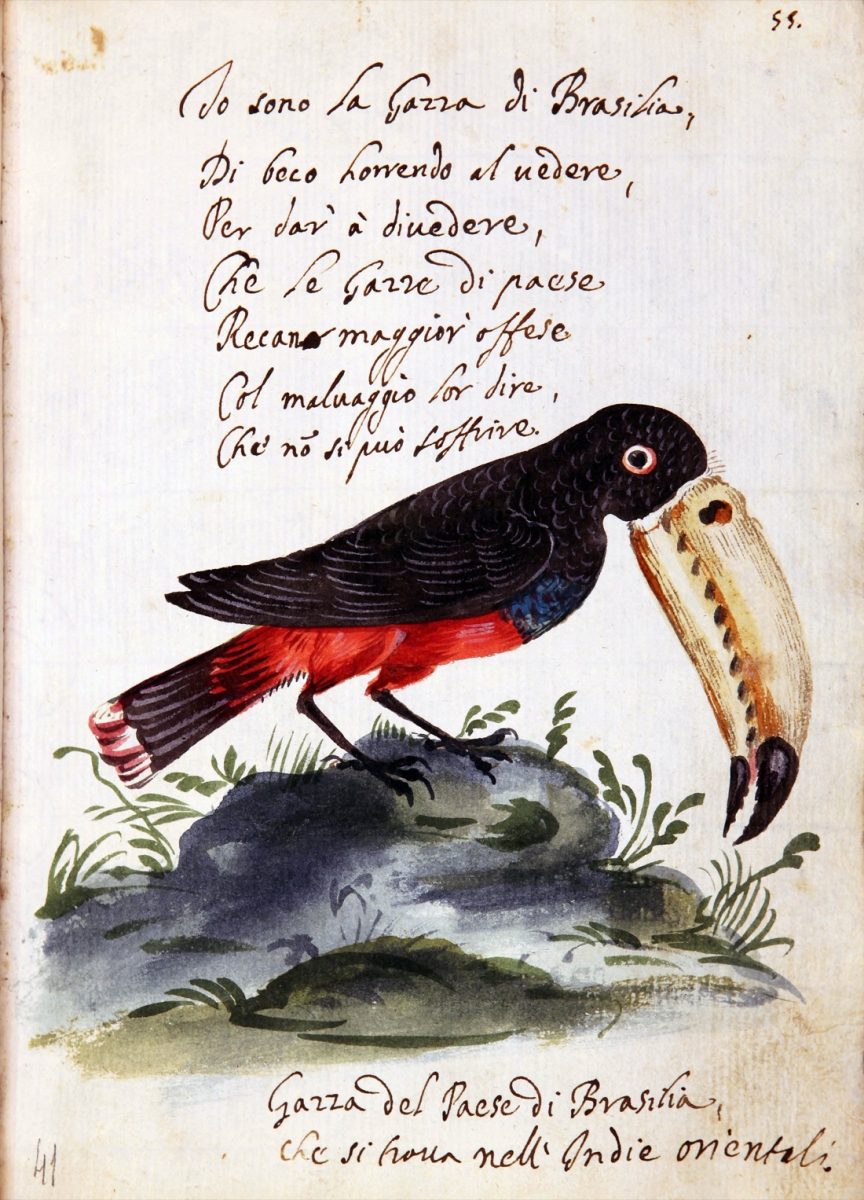 55.
Io sono la Gazza di Brasilia,
Di beco horrendo al uedere,
Per dar' à diuedere,
Che le Gazze di paese
Recano maggior' offese
Col maluaggio lor dire,
Che nō si può soffrire.
Gazza del Paese di Brasilia,
che si troua nell' Indie orientali.
41